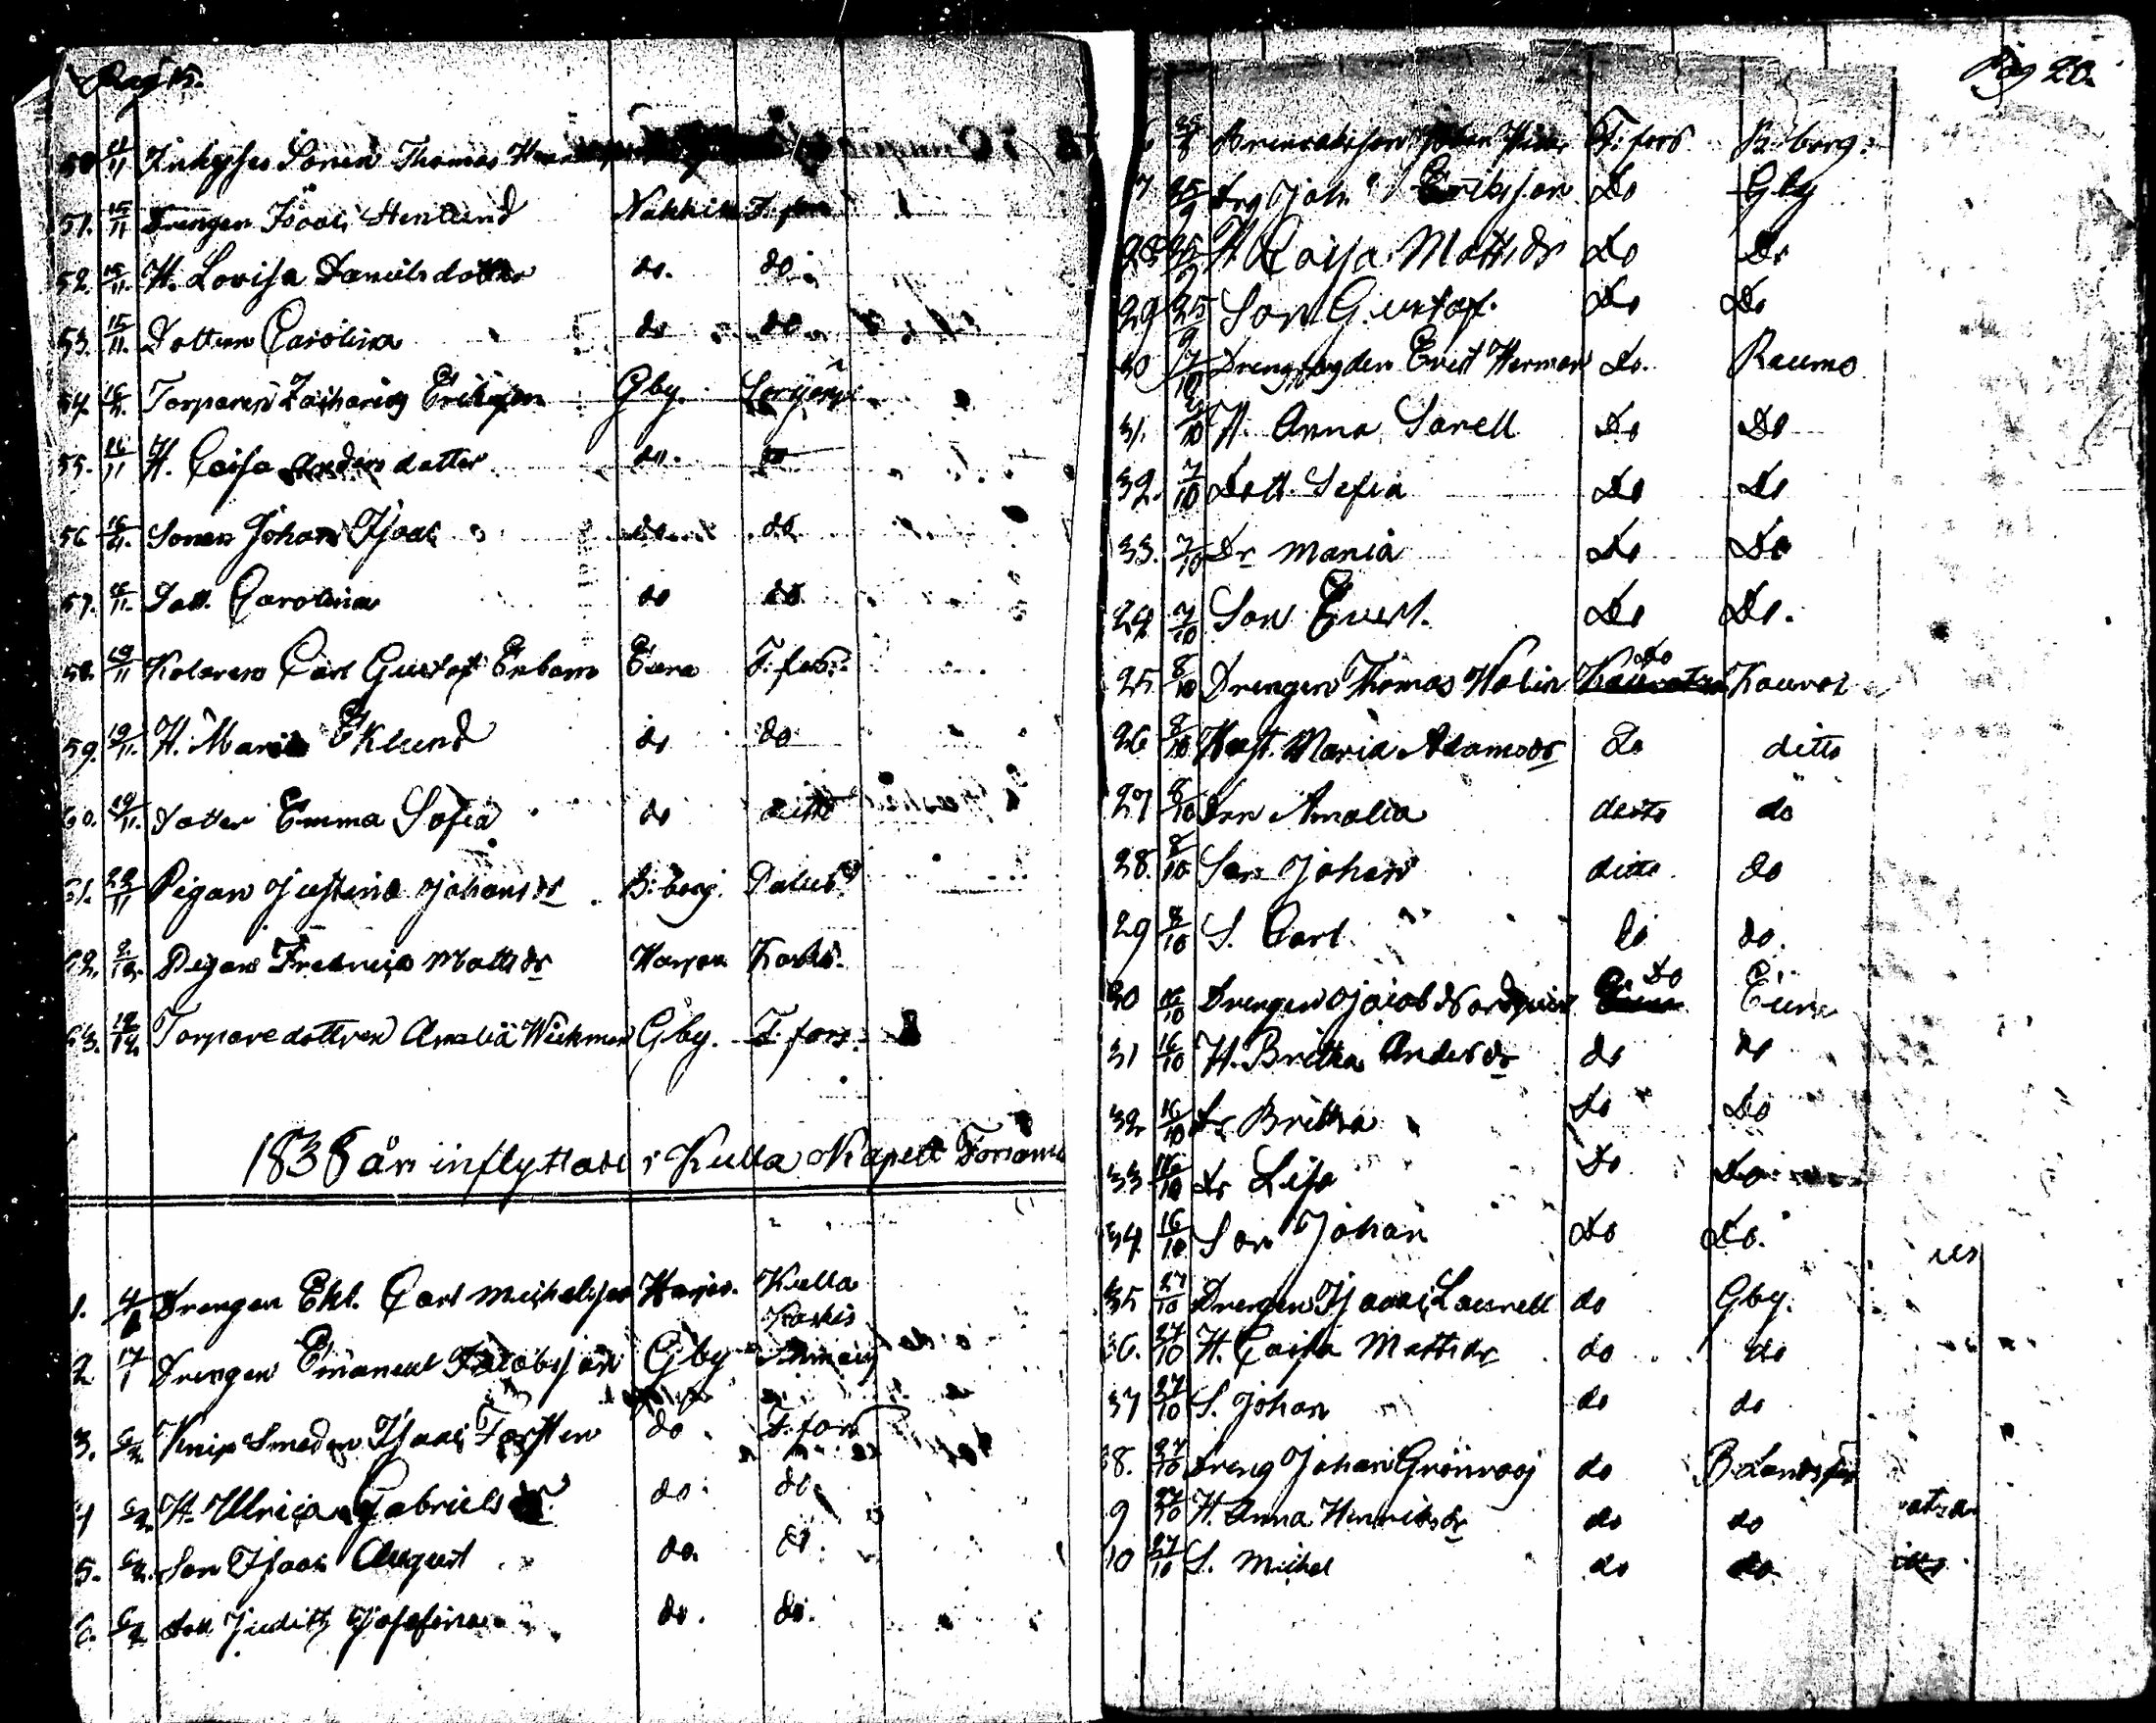 50. 11/11 Inhyses Sonen Thomas
51. 15/11 Drengen Isaac Stenlund Nakkila F:fors
52. 15/11. H. Lovisa Danielsdotter do. do
53. 15/11. Dottern Carolina do do
54. 16/11. Torparen Zacharias Eriksson Gby.
55. 16/11 H. Caisa Andersdotter do. do
56 16/11. Sonen Johan Isaac do do
57. 16/11. Dott. Carolina do do
58. 19/11 Kolaren Carl Gustaf Enbom Eura F:fors.
59. 19/11. H. Maria Eklund do do
60. 19/11. Dotter Emma Sofia do ditto
61. 22/11 Pigan Justina Johansdr B:borg.
62. 2/12. Pigan Fredrica Mattsdr
63. 12/12. Torparedottren Amalia Wickman Gby. F:fors.
1838 år inflyttade i Kulla Kapell Församl
1. Drengen Ekl. Carl Michelsson Kulla
2 17/1 Drengen Emanuel Jacobsson Gby
3. 6/2 Knip Smeden Isaac Torsten do F:fors
4 6/2. H. Ulrica Gabrielsdr do. do.
5. 6/2. Son Isaac August do. do.
6. 6/2 Dott Judith Josefina do. do.
Pag 20.
F:fors B:borg:
7 25/9 Drg Joh: Eriksson Do Gby
28 25/9 H Caisa Mattsdr Do Do
29 25/9 Son Gustaf. Do Do
30 7/10 Evert Herman Do. Raumo
31. 7/10 H. Anna Sarell Do Do
32. 7/10 Dott. Sefia Do Do
33. 7/10 Dr Maria Do Do
24 7/10 Son Evert. Do Do.
25 8/10 Drengen Thomas Holin Do
26 8/10 Hust. Maria Adamsdr Do ditto
27 8/10 Dr Amalia ditto do
28. 8/10 Son Johan ditto do
29 8/10 S. Carl do do.
30 16/10 Drengen Jacob Nordqvist Do Eura
31 16/10 H. Britta Andersdr do do
32 16/10 Dr Britta Do Do
33 16/10 Dr Lisa Do Do
34. 16/10 Son Johan Do Do.
35 27/10 Drengen Isaac Laurell do Gby.
36. 27/10 H. Caisa Mattsdr do do
37 27/10 S. Johan do do
38. 27/10 Dreng Johan Grönroos do
9 27/10 H. Anna Henriksdr do do
10 27/10 S. Michel do do